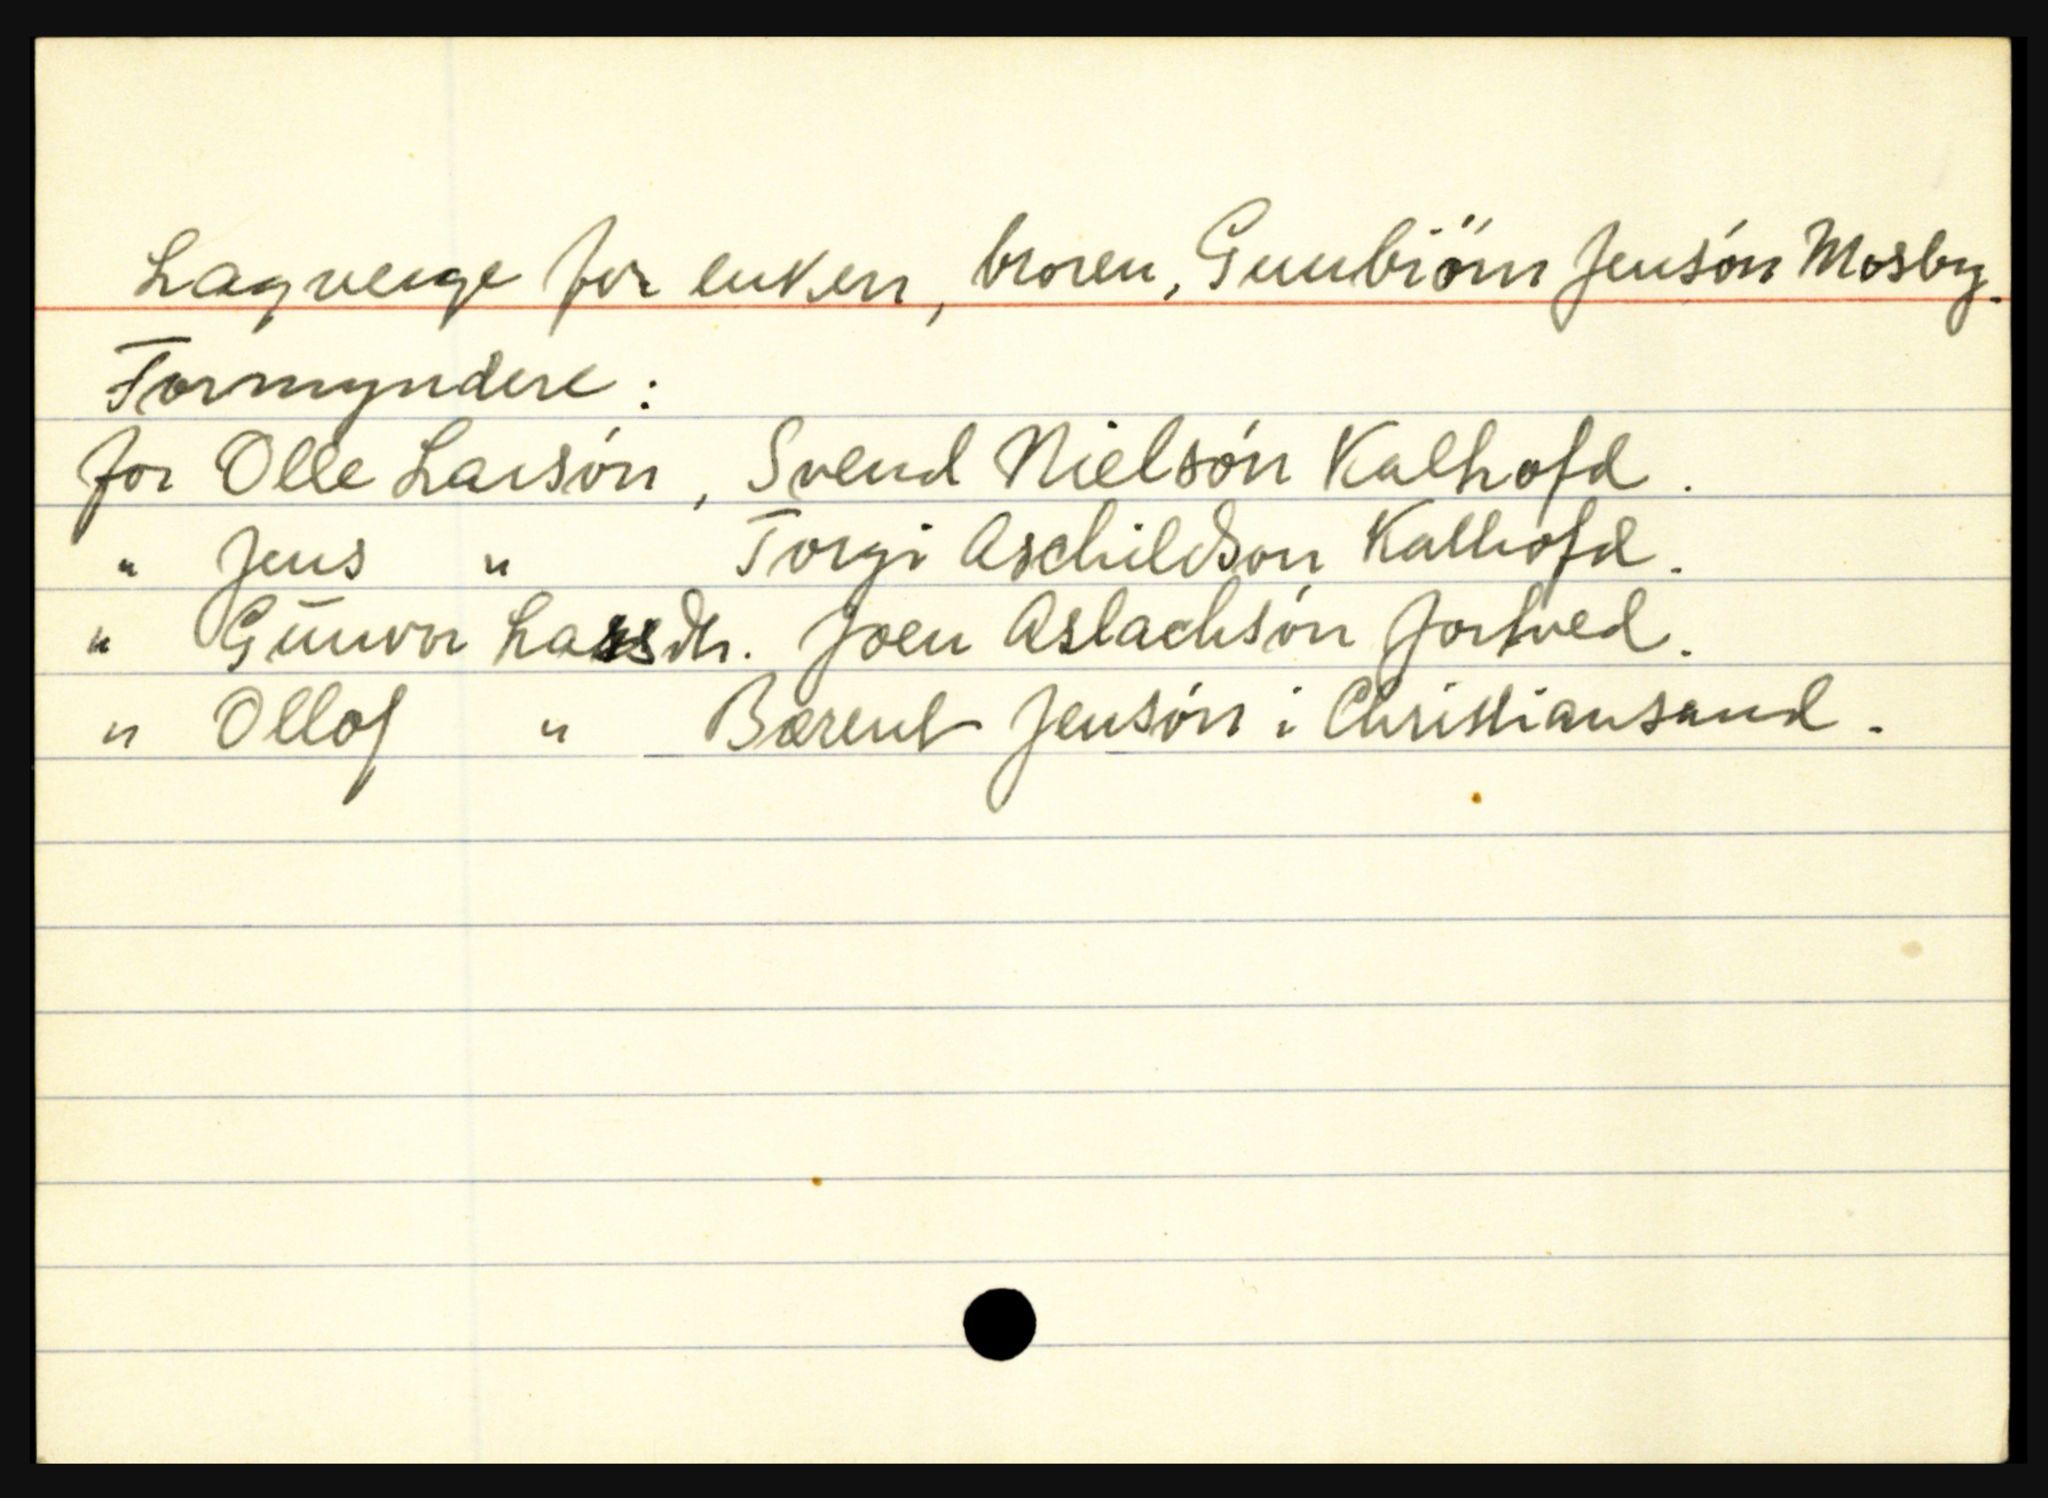 Lagverge for enken, broren, Gunbiörn Jensón Mosby.
Formyndere:
for Olle Larsón, Svend Nielsón Kalhofd.
" Jens " Torgi Aschildson Kalhofd.
" Gunvor Larsdtr. Joen Aslachsón Fortved.
" Ollof " Barent Jensón i Christiansand.